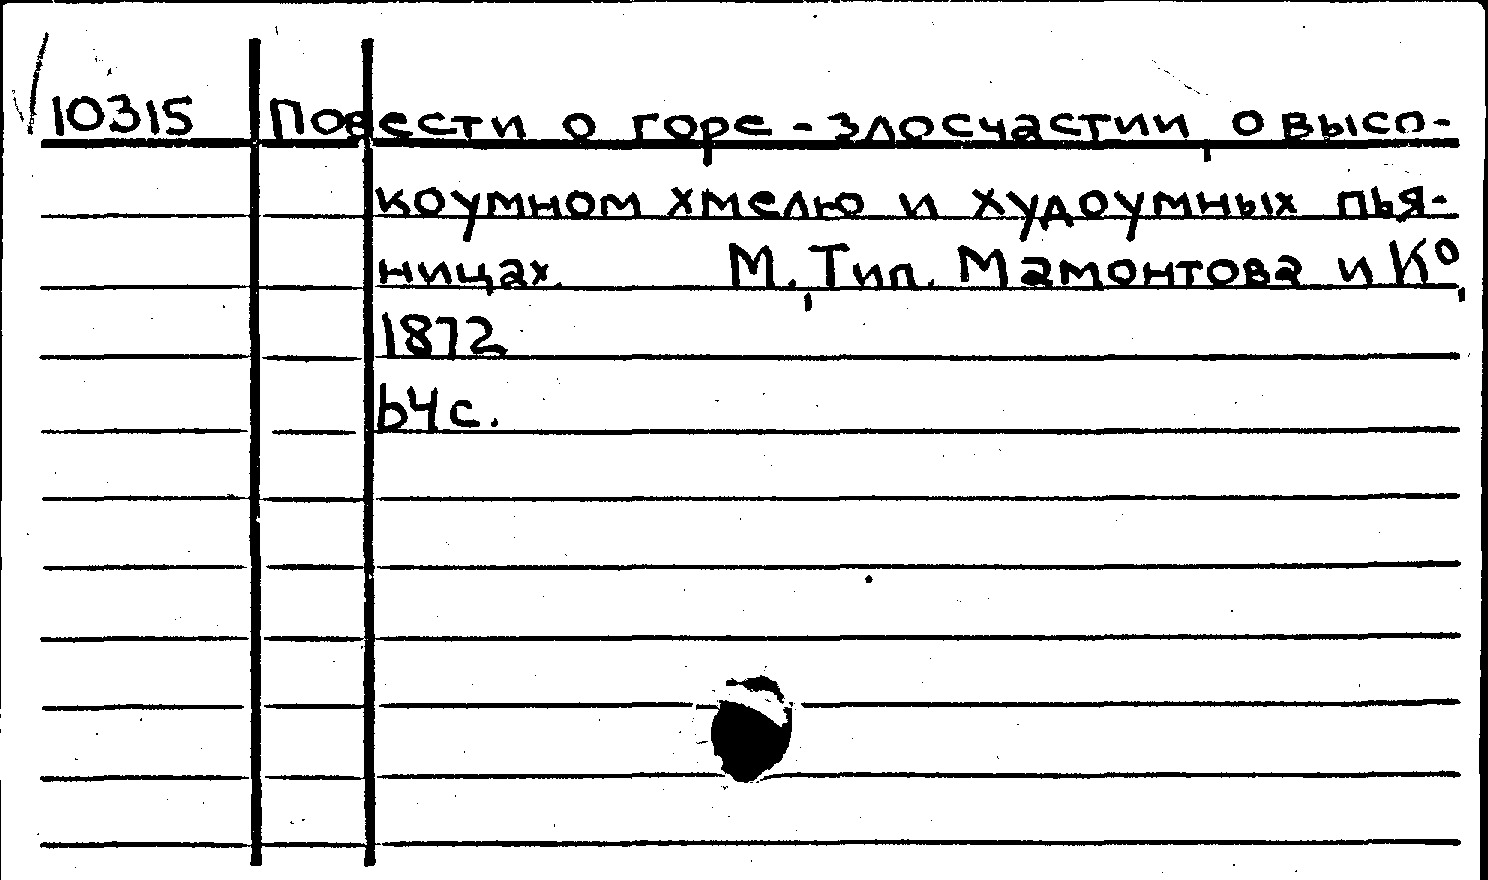 10315 Повести о горе-злосчастии, о высо-
коумном хмелю и худоумных пья-
ницах. М., Тип. Мамонтова и К°,
1872
64 с.